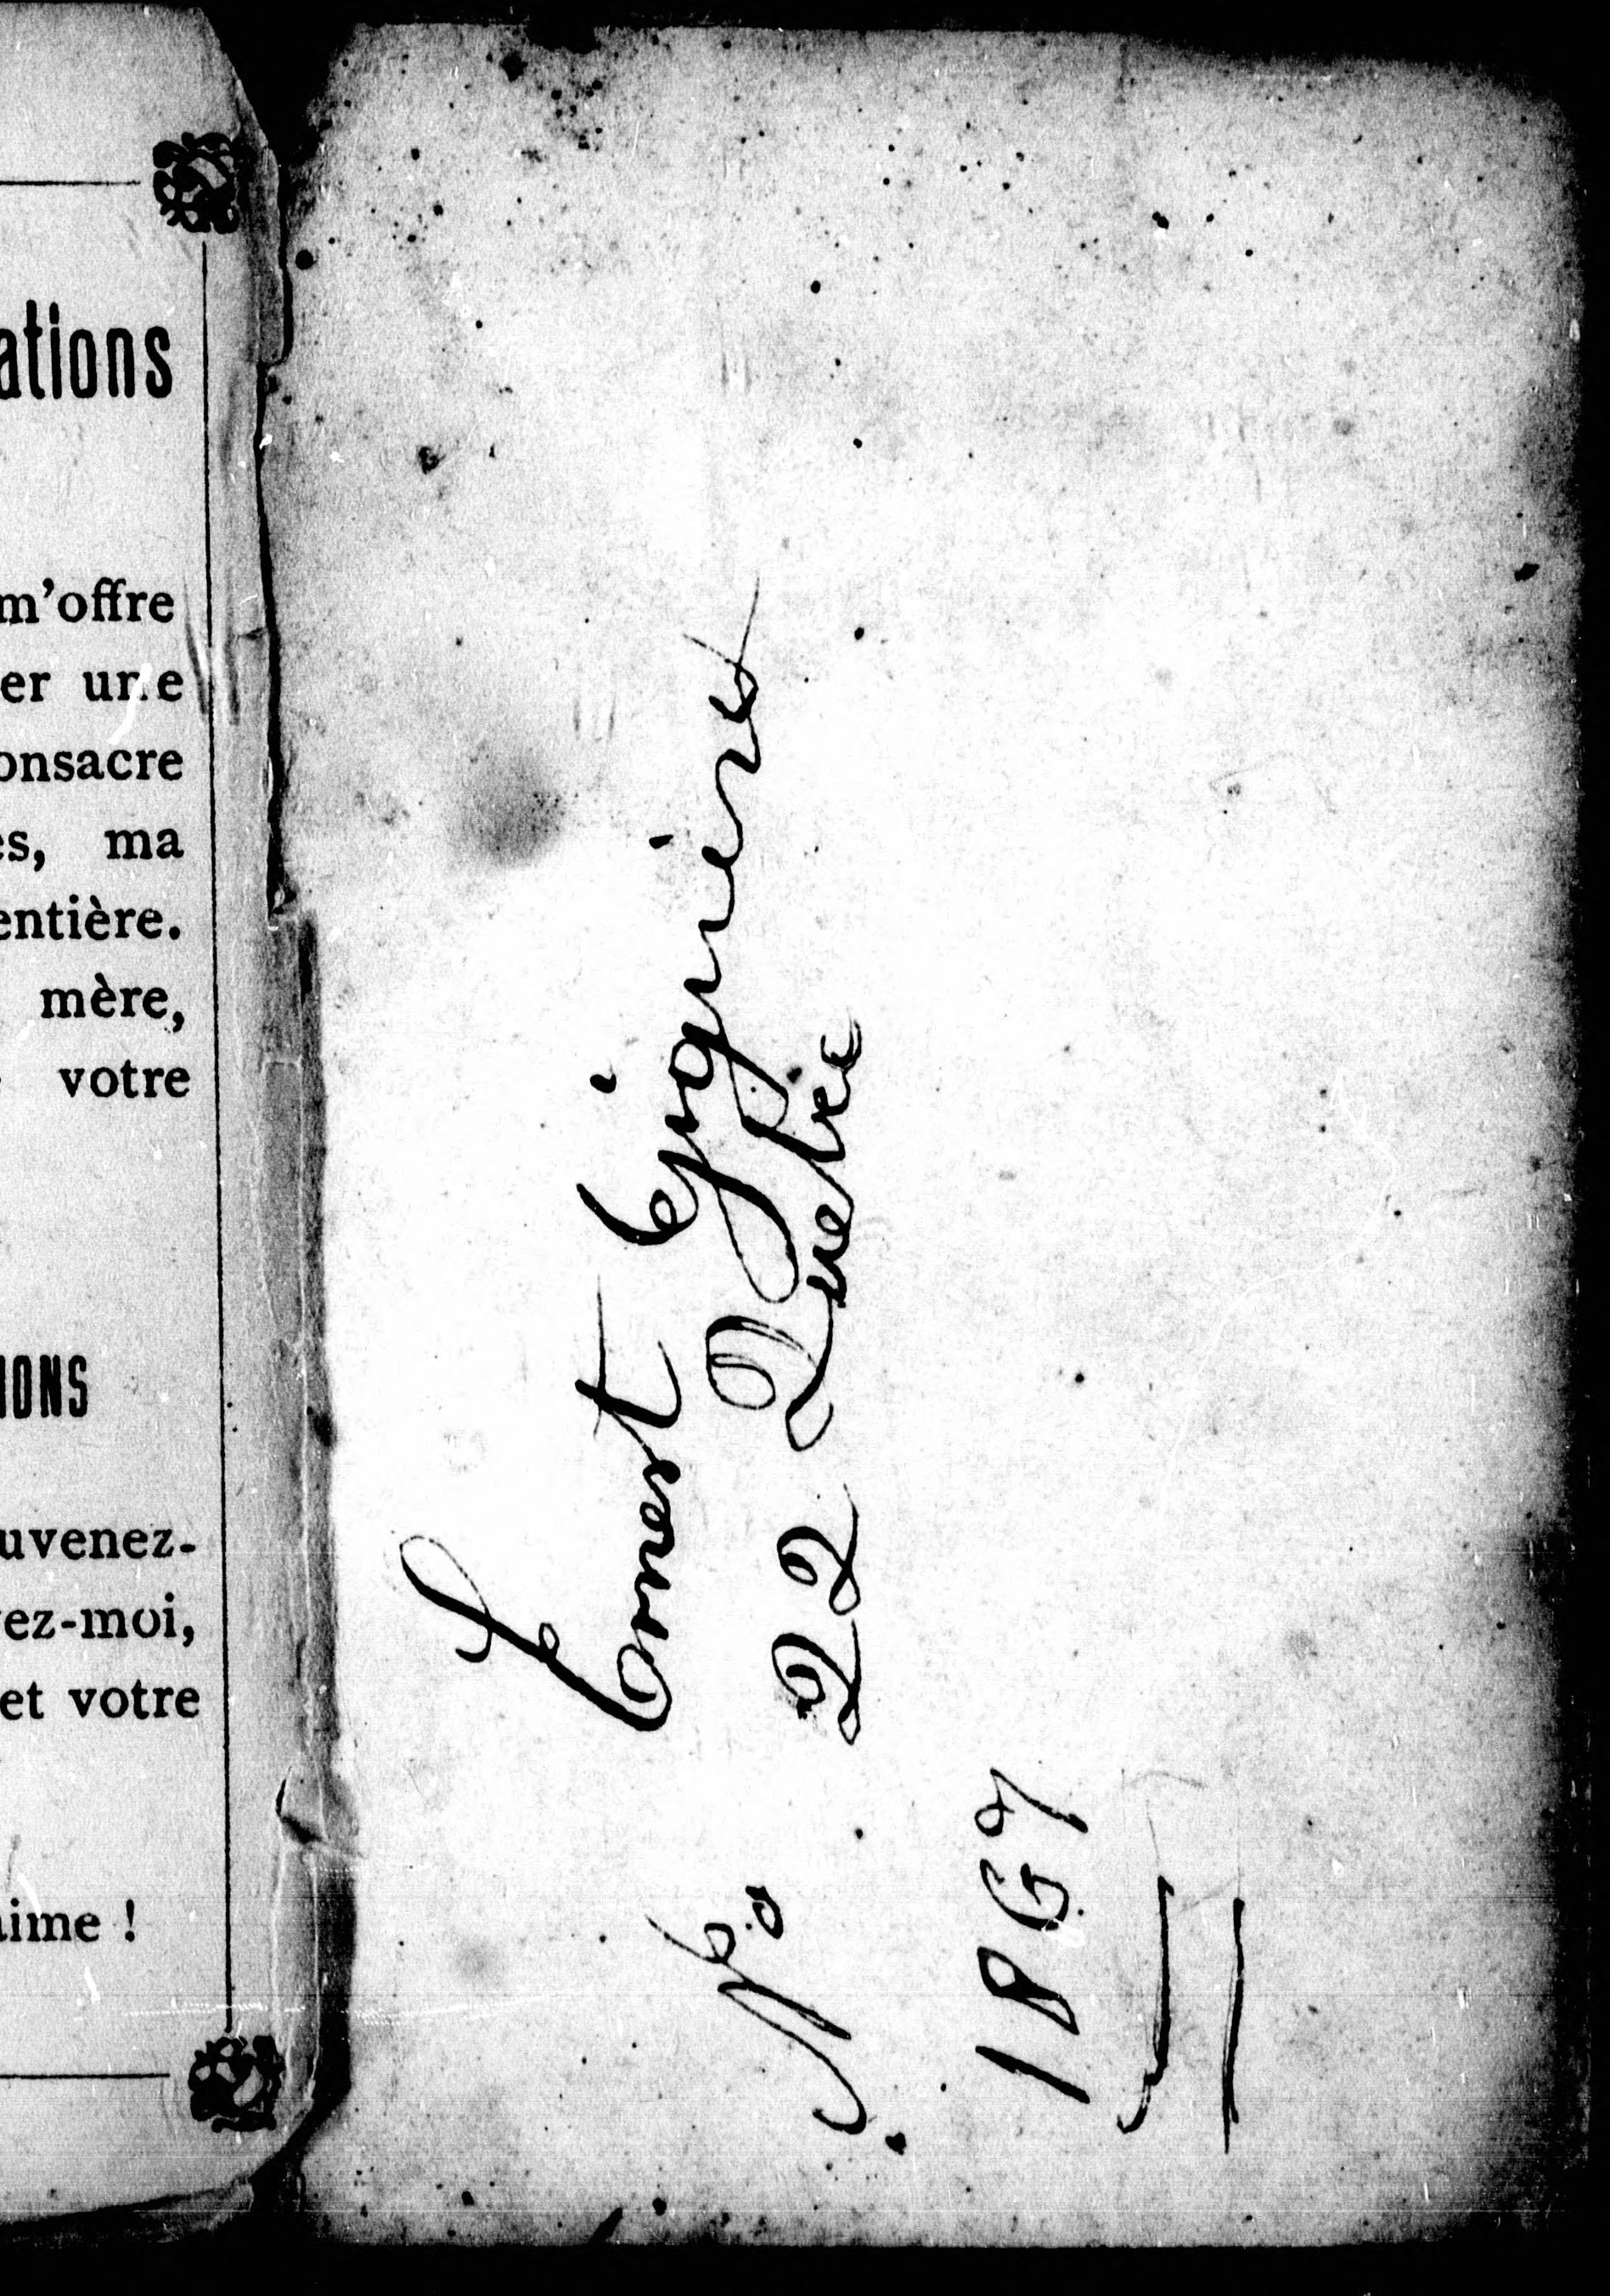 ations
m'offre
er une
onsacre
es, ma
entière.
mère,
votre
IONS
uvenez-
ez-moi,
et votre
aime !
Ernest
No 22 Quebec
1867